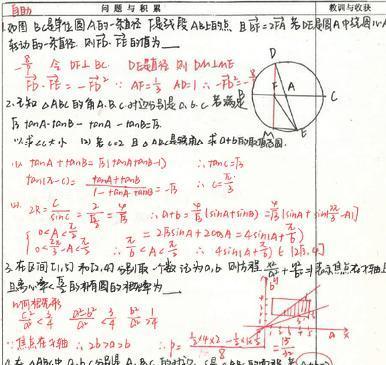 自助 问题与积累 教训与收获
1.如图 BC是单位圆A的一条直径 F是线段AB上的点 且 BF=2FA 若DE是圆A中绕圆心A
转动的一条直径 则 FD·FE的值为
-8/9 令 DF⊥BC DE直径 则 DM⊥ME
FD·FE = -FD² ∵ AF=1/3 AD=1 ∴ -FD²=-8/9
D
B F A C
M E
2.已知△ABC的角A.B.C对边分别是a.b.c 若满足
√3 tanA·tanB - tanA - tanB=√3
以求∠C大小 (2) 若c=2 且△ABC是锐角△ 求a+b的取值范围
(1) tanA+tanB=√3(tanAtanB-1) ∴ tanC=√3
tan(π-C)= (tanA+tanB)/(1-tanA·tanB) =-√3 ∴ C=π/3
(2) 2R= c/sinC = 2/(√3/2) = 4/√3 ∴ a+b=4/√3(sinA+sinB)=4/√3[sinA+sin(2π/3-A)]
{0<A<π/2 =2√3sinA+2cosA=4sin(A+π/6)
0<2π/3-A<π/2 ∴ π/6<A<π/2 ∴ 4sin(A+π/6)∈(2√3,4]
3.在区间[1,5]和[2,4]分别取一个数 记为a,b 则方程 x²/a²+y²/b²=1 表示焦点在x轴上
且离心率<√3/2的椭圆的概率为
c²/a²<3/4 (a²-b²)/a²<3/4 b²/a²>1/4
焦点在x轴 ∴ 2b>a>b ∴ P= =15/32
4.在△ABC中 a.b.c分别是A.B.C的对边